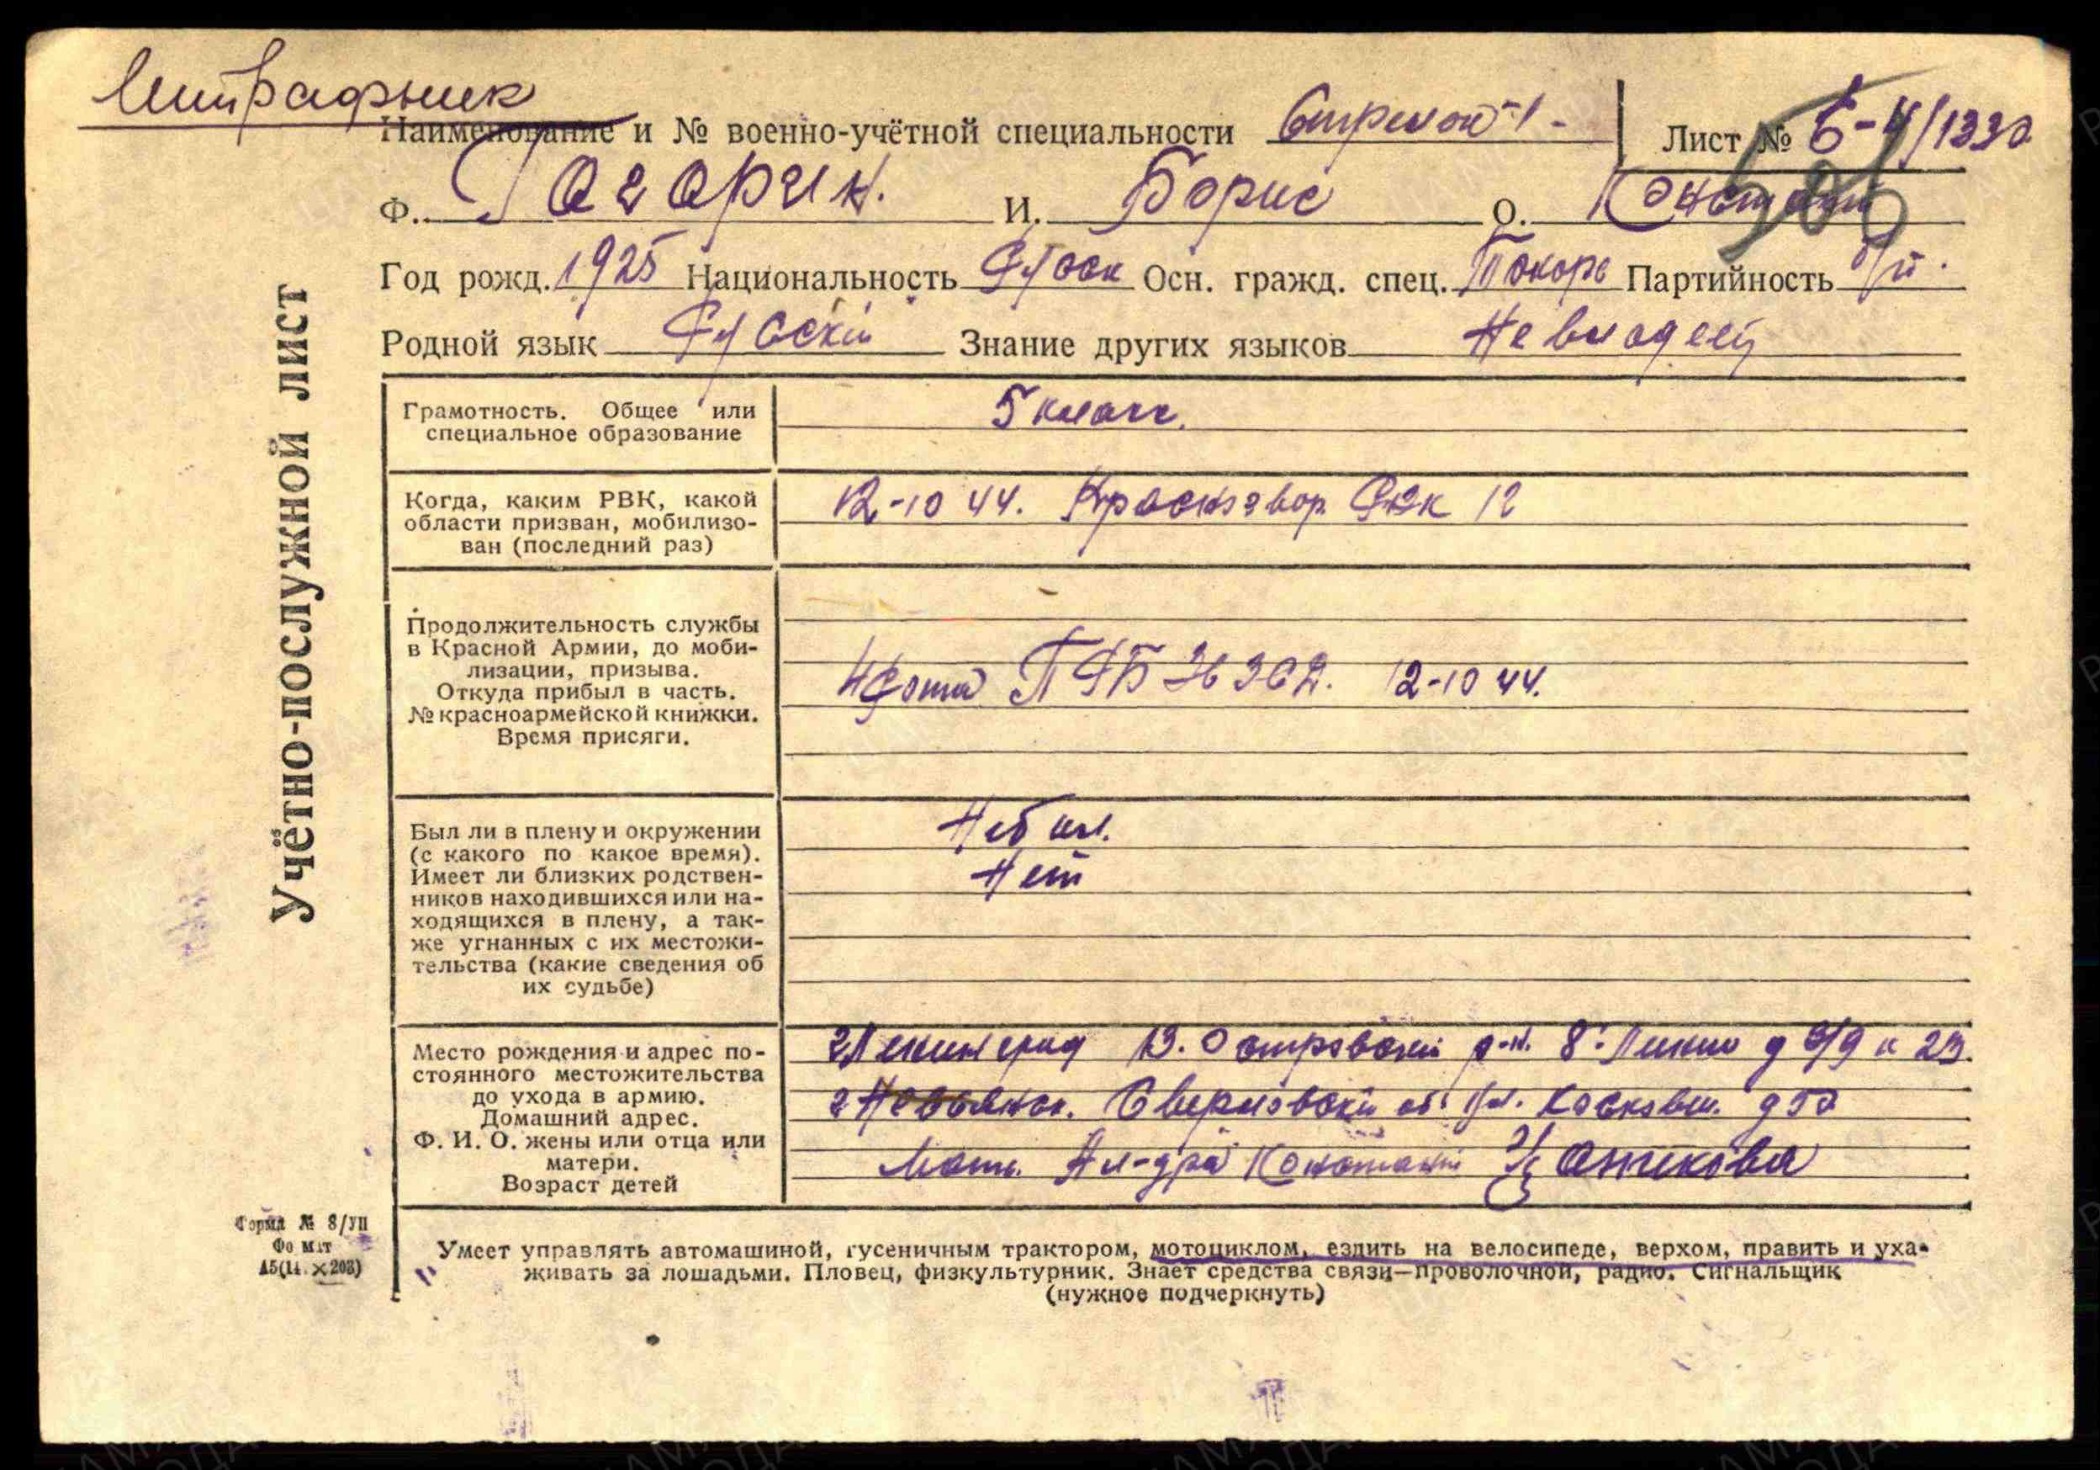 Штрафник
Наименование и № военно-учётной специальности Стрелок-1- Лист № Б-4/1330
Ф. Гагарин. И. Борис О. Констант
Год рожд. 1925 Национальность Русск Осн. гражд. спец. Токарь Партийность б/п.
Родной язык Русский Знание других языков Не владеет
Учётно-послужной лист
Грамотность. Общее или
специальное образование
5 класс.
Когда, каким РВК, какой
области призван, мобилизо-
ван (последний раз)
12-10 44. Красногвор. РВК 12
Продолжительность службы
в Красной Армии, до моби-
лизации, призыва.
Откуда прибыл в часть.
№ красноармейской книжки.
Время присяги.
4 рота 36 ЗСД. 12-10 44.
Был ли в плену и окружении
(с какого по какое время).
Имеет ли близких родствен-
ников находившихся или на-
ходящихся в плену, а так-
же угнанных с их местожи-
тельства (какие сведения об
их судьбе)
Не был.
Нет
Место рождения и адрес по-
стоянного местожительства
до ухода в армию.
Домашний адрес.
Ф. И. О. жены или отца или
матери.
Возраст детей
г Ленинград В. Островский р-н. 8: Линия д 9/9 к 23.
г Невьянск. Свердловский об. ул. д 50
Мать. Ал-дра Констант
Форма № 8/УП
Формат
А5(14.×203)
Умеет управлять автомашиной, гусеничным трактором, мотоциклом, ездить на велосипеде, верхом, править и уха-
живать за лошадьми. Пловец, физкультурник. Знает средства связи—проволочной, радио. Сигнальщик
(нужное подчеркнуть)